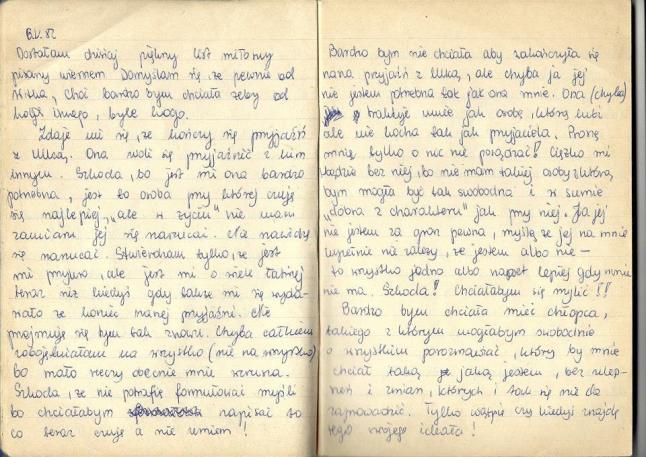 6.V.82
Dostałam dzisiaj piękny list miłosny
pisany wierszem Domyślam się, że pewnie od
, choć bardzo bym chciała żeby od
kogoś innego, byle kogo.
Zdaje mi się, że kończy się przyjaźń
z Ulką. Ona woli się przyjaźnić z kim
innym. Szkoda, bo jest mi ona bardzo
potrzebna, jest to osoba przy której czuję
się najlepiej, ale w życiu" nie mam
zamiaru jej się narzucać. Nie nawidzę
się narzucać. Stwierdzam tylko, że jest
mi przykro, ale jest mi o wiele łatwiej
teraz niż kiedyś gdy także mi się wyda-
wało że koniec naszej przyjaźni. Nie
przejmuję się tym tak znowu. Chyba całkiem
zobojętniałam na wszystko (nie na wszystko)
bo mało rzeczy obecnie mnie wzrusza.
Szkoda, że nie potrafię formułować myśli
bo chciałabym napisać to
co teraz czuję a nie umiem!
Bardzo bym nie chciała aby zakończyła się
nasza przyjaźń z Ulką, ale chyba ja jej
nie jestem potrzebna tak jak ona mnie. Ona (chyba)
traktuje mnie jak osobę, którą lubi
ale nie kocha tak jak przyjaciela. Proszę
mnie tylko o nic nie posądzać! Ciężko mi
będzie bez niej, bo nie mam takiej osoby z którą
bym mogła być tak swobodna i w sumie
„dobra z charakteru" jak przy niej. Ja jej
nie jestem za grosz pewna, myślę że jej na mnie
zupełnie nie zależy, że jestem albo nie –
to wszystko jedno albo nawet lepiej gdy mnie
nie ma. Szkoda! Chciałabym się mylić!!
Bardzo bym chciała mieć chłopca,
takiego z którym mogłabym swobodnie
o wszystkim porozmawiać, który by mnie
chciał taką, jaką jestem, bez ulep-
szeń i zmian, których i tak się nie da
zaprowadzić. Tylko wątpię czy kiedyś znajdę
tego swojego ideała!